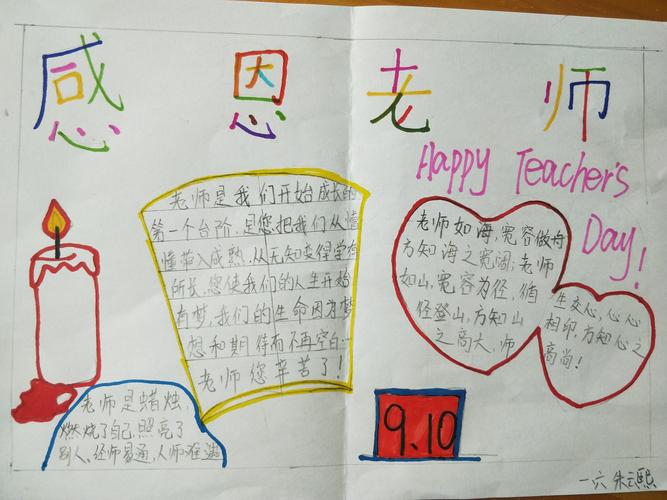 感恩老师
Happy Teacher's
Day!
老师是我们开始成长的
第一个台阶,是您把我们从懵
懂带入成熟,从无知变得学有
所长,您使我们的人生开始
有梦,我们的生命因为梦
想和期待而不再空白…
老师您辛苦了!
老师如海,宽容做舟
方知海之宽阔;老师
如山,宽容为径,循
径登山,方知山
之高大,师
生交心,心心
相印,方知心之
高尚!
老师是蜡烛,
燃烧了自己,照亮了
别人,经师易遇,人师难遇
9.10
一六 朱云熙